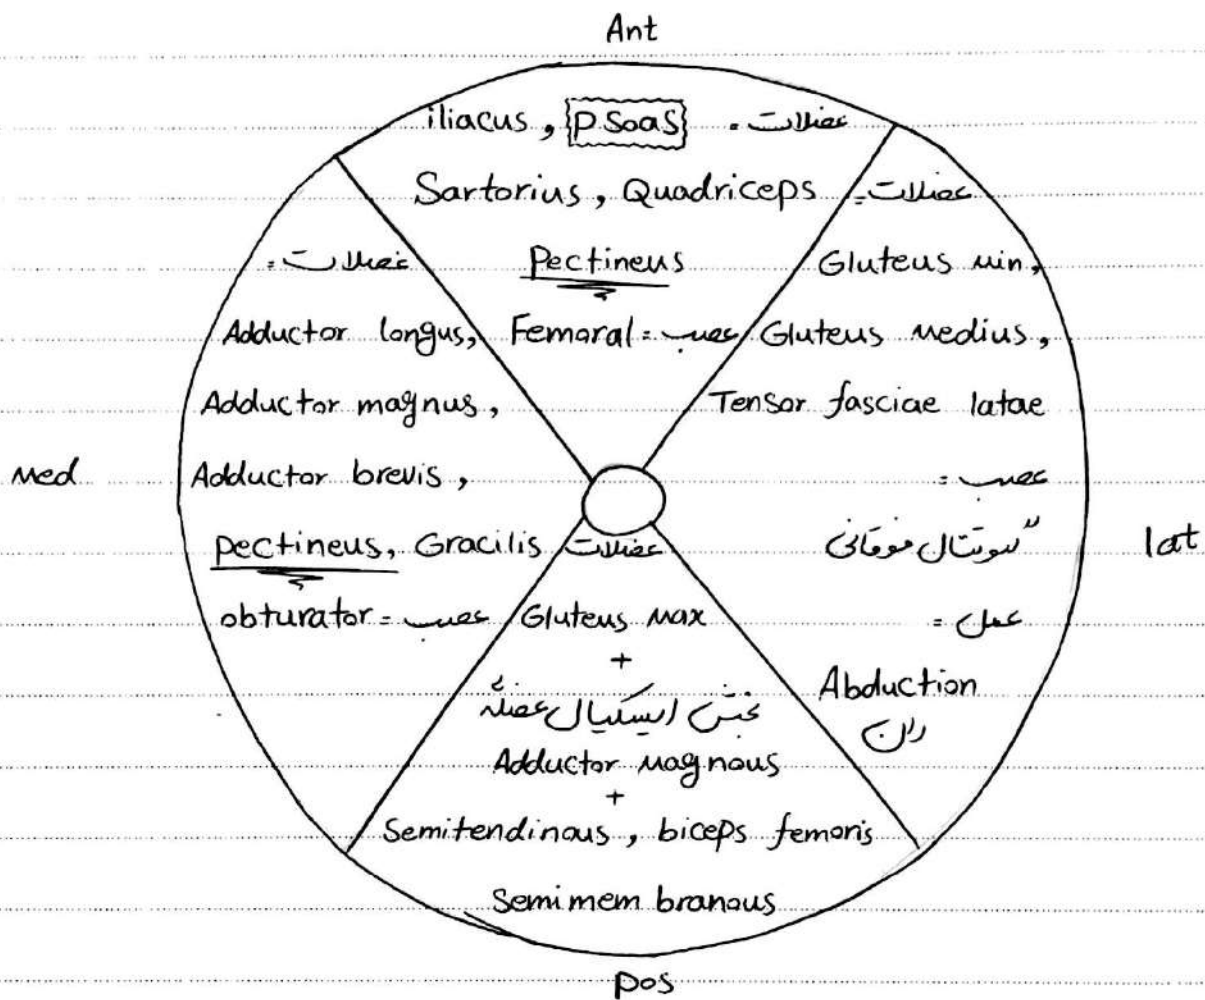 Ant
عضلات = iliacus, psoas
Sartorius, Quadriceps
Pectineus
عصب = Femoral
عضلات =
Gluteus min,
Gluteus medius,
Tensor fasciae latae
عصب =
گلوتئال فوقانی
عمل =
Abduction
ران
lat
عضلات =
Adductor longus,
Adductor magnus,
Adductor brevis,
pectineus, Gracilis
عصب = obturator
Med
عضلات
Gluteus Max
+
بخش ایسکیال عضلهٔ
Adductor Magnous
+
Semitendinous, biceps femoris
Semimem branous
pos